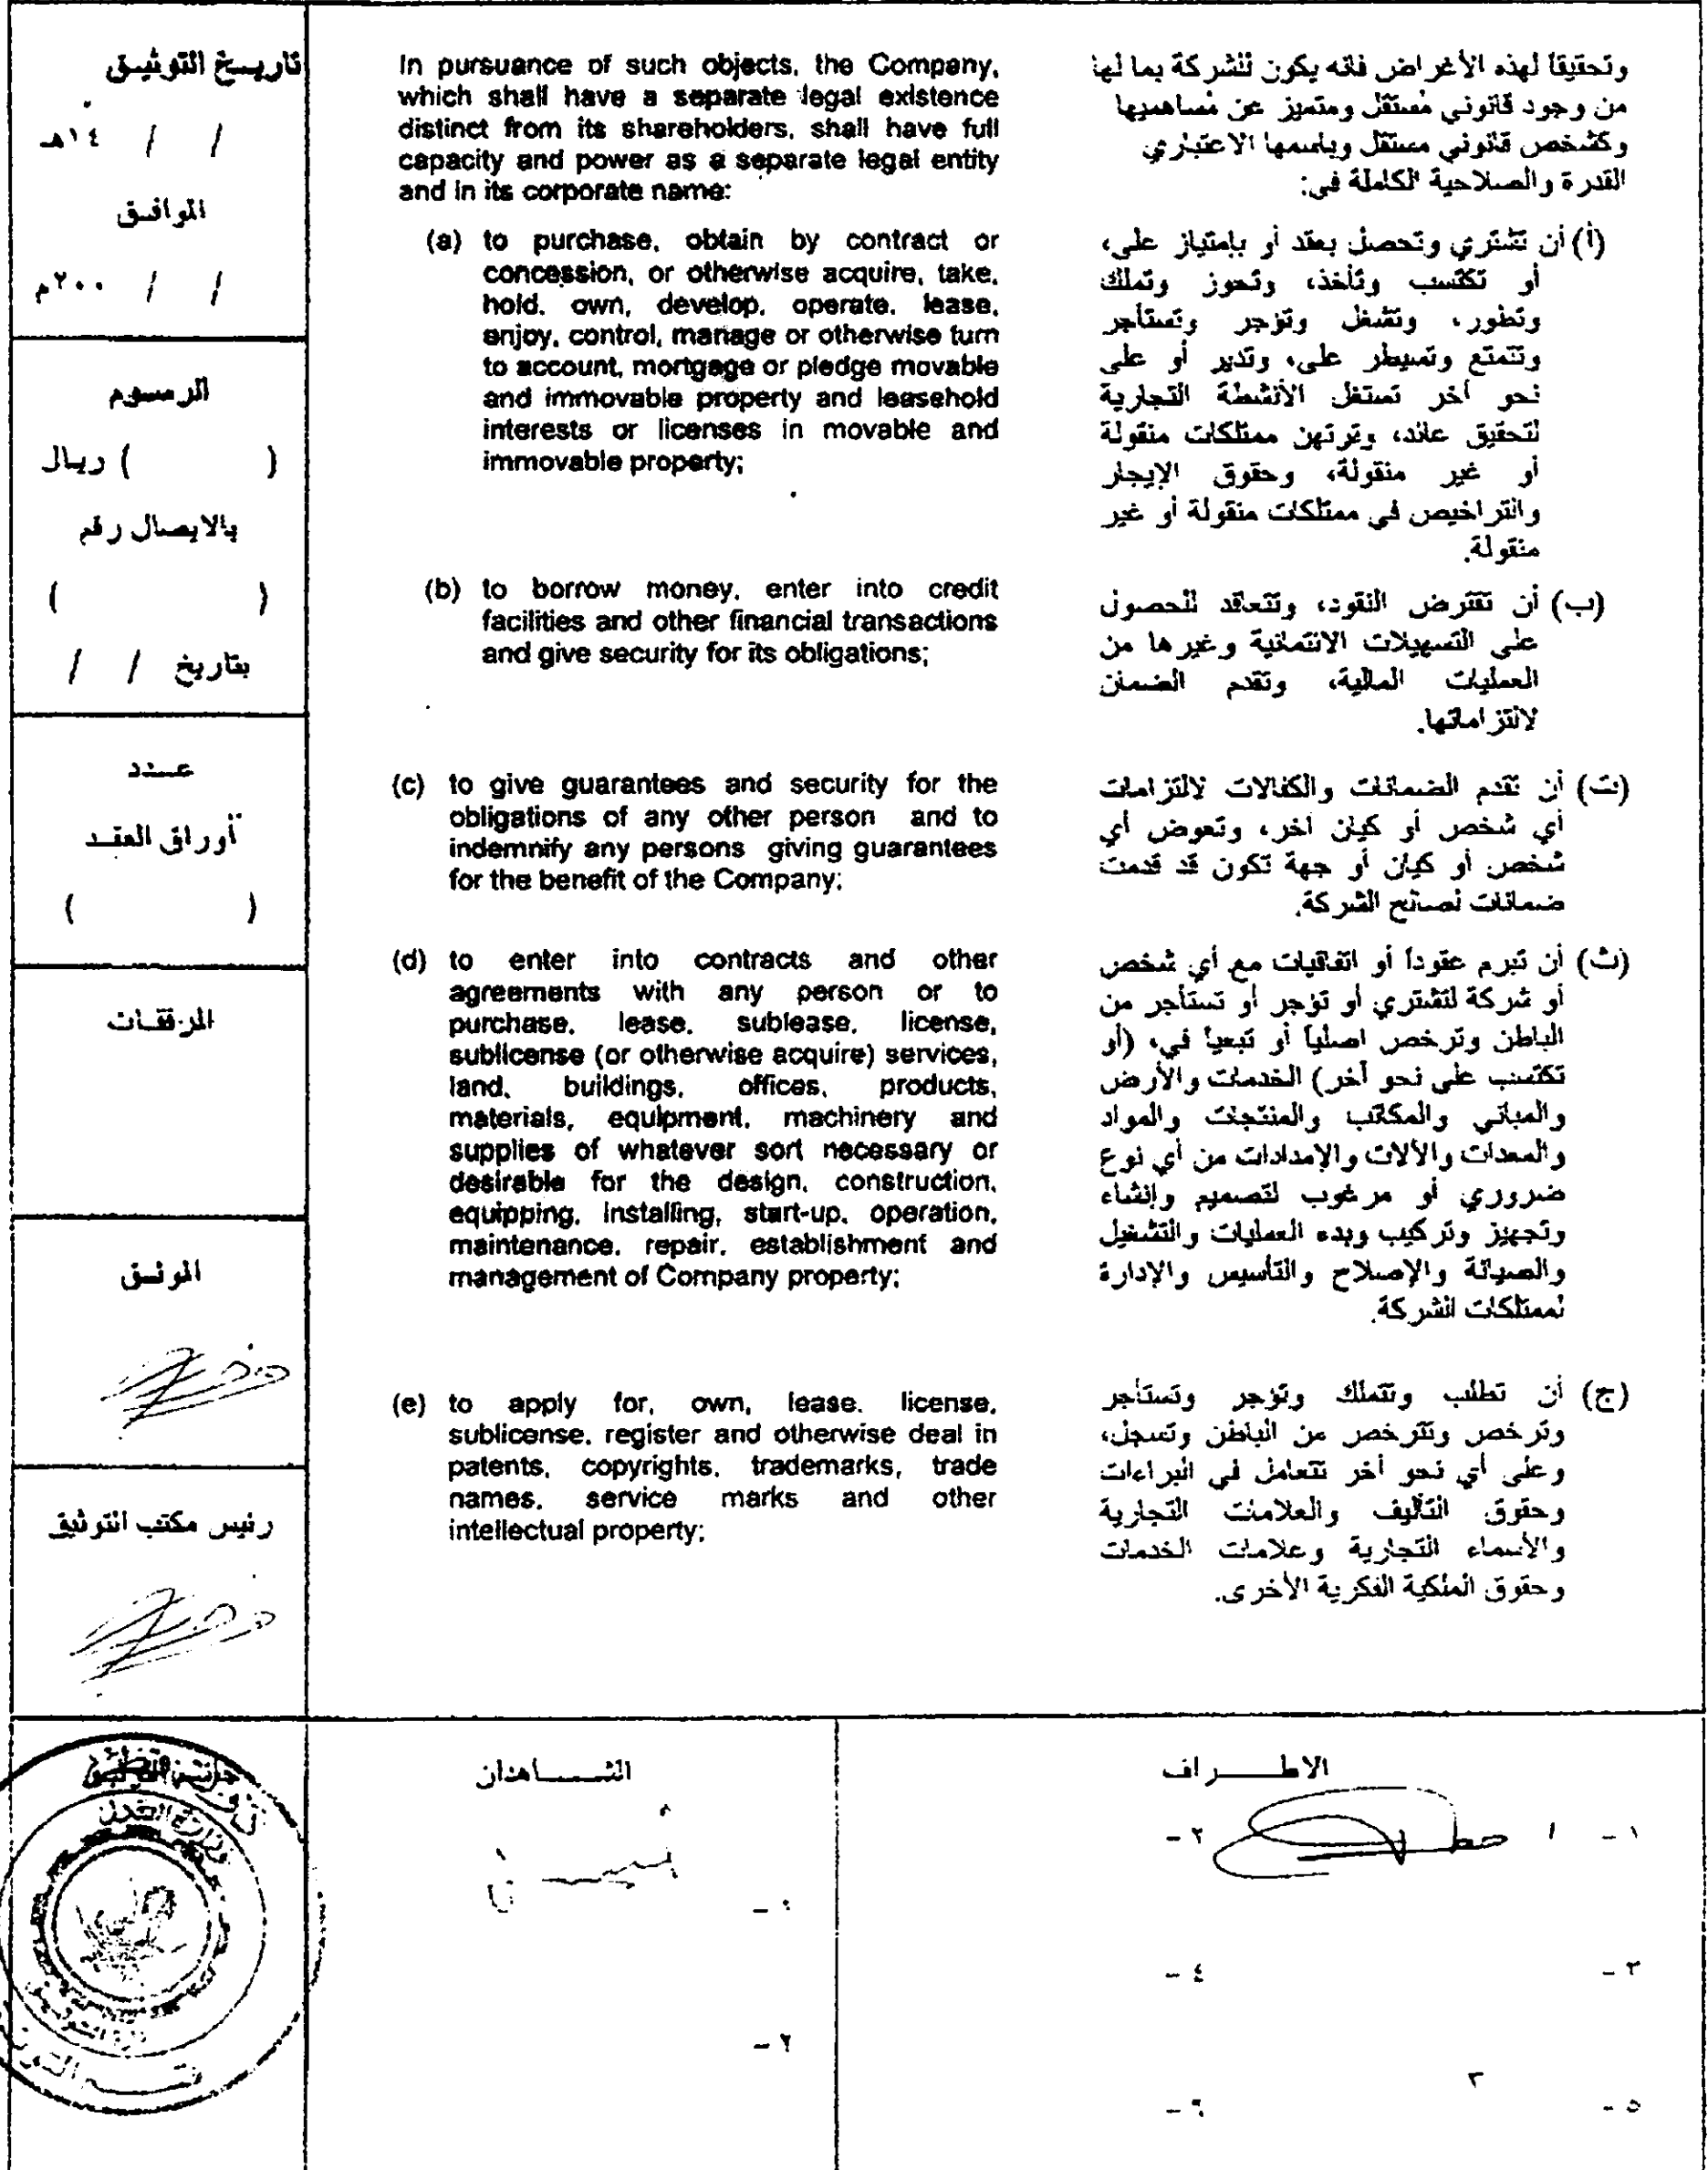 تاريخ التوثيق
/ / ١٤هـ
الموافق
/ / ٢٠٠م
الرسوم
( ) ريال
بالايصال رقم
( )
بتاريخ / /
عدد
أوراق العقد
( )
المرفقات
الموثق
رئيس مكتب التوثيق
In pursuance of such objects, the Company,
which shall have a separate legal existence
distinct from its shareholders, shall have full
capacity and power as a separate legal entity
and in its corporate name:
(a) to purchase, obtain by contract or
concession, or otherwise acquire, take,
hold, own, develop, operate, lease,
enjoy, control, manage or otherwise turn
to account, mortgage or pledge movable
and immovable property and leasehold
interests or licenses in movable and
immovable property;
(b) to borrow money, enter into credit
facilities and other financial transactions
and give security for its obligations;
(c) to give guarantees and security for the
obligations of any other person and to
indemnify any persons giving guarantees
for the benefit of the Company;
(d) to enter into contracts and other
agreements with any person or to
purchase, lease, sublease, license,
sublicense (or otherwise acquire) services,
land, buildings, offices, products,
materials, equipment, machinery and
supplies of whatever sort necessary or
desirable for the design, construction,
equipping, installing, start-up, operation,
maintenance, repair, establishment and
management of Company property;
(e) to apply for, own, lease, license,
sublicense, register and otherwise deal in
patents, copyrights, trademarks, trade
names, service marks and other
intellectual property;
وتحقيقا لهذه الأغراض فانه يكون للشركة بما لها
من وجود قانوني مُستقل ومتميز عن مُساهميها
وكشخص قانوني مستقل وباسمها الاعتباري
القدرة والصلاحية الكاملة في:
(أ) أن تشتري وتحصل بعقد أو بإمتياز على،
أو تكتسب وتأخذ، وتحوز وتملك
وتطور، وتشغل وتؤجر وتستأجر
وتتمتع وتسيطر على، وتدير أو على
نحو أخر تستغل الأنشطة التجارية
لتحقيق عائد، وترتهن ممتلكات منقولة
أو غير منقولة، وحقوق الإيجار
والتراخيص في ممتلكات منقولة أو غير
منقولة.
(ب) أن تقترض النقود، وتتعاقد للحصول
على التسهيلات الائتمانية وغيرها من
العمليات المالية، وتقدم الضمان
لالتزاماتها.
(ت) أن تقدم الضمانات والكفالات لالتزامات
أي شخص أو كيان أخر، وتعوض أي
شخص أو كيان أو جهة تكون قد قدمت
ضمانات لصالح الشركة.
(ث) أن تبرم عقوداً أو اتفاقيات مع أي شخص
أو شركة لتشتري أو تؤجر أو تستأجر من
الباطن وترخص اصلياً أو تبعياً في، (أو
تكتسب على نحو أخر) الخدمات والأرض
والمباني والمكاتب والمنتجات والمواد
والمعدات والألات والإمدادات من أي نوع
ضروري أو مرغوب لتصميم وإنشاء
وتجهيز وتركيب وبدء العمليات والتشغيل
والصيانة والإصلاح والتأسيس والإدارة
لممتلكات الشركة.
(ج) أن تطلب وتتملك وتؤجر وتستأجر
وترخص وتترخص من الباطن وتسجل،
وعلى أي نحو أخر تتعامل في البراءات
وحقوق التأليف والعلامات التجارية
والأسماء التجارية وعلامات الخدمات
وحقوق الملكية الفكرية الأخرى.
الشاهدان
١ -
٢ -
الاطراف
١ - ٢ -
٣ - ٤ -
٣
٥ - ٦ -
وزارة العدل